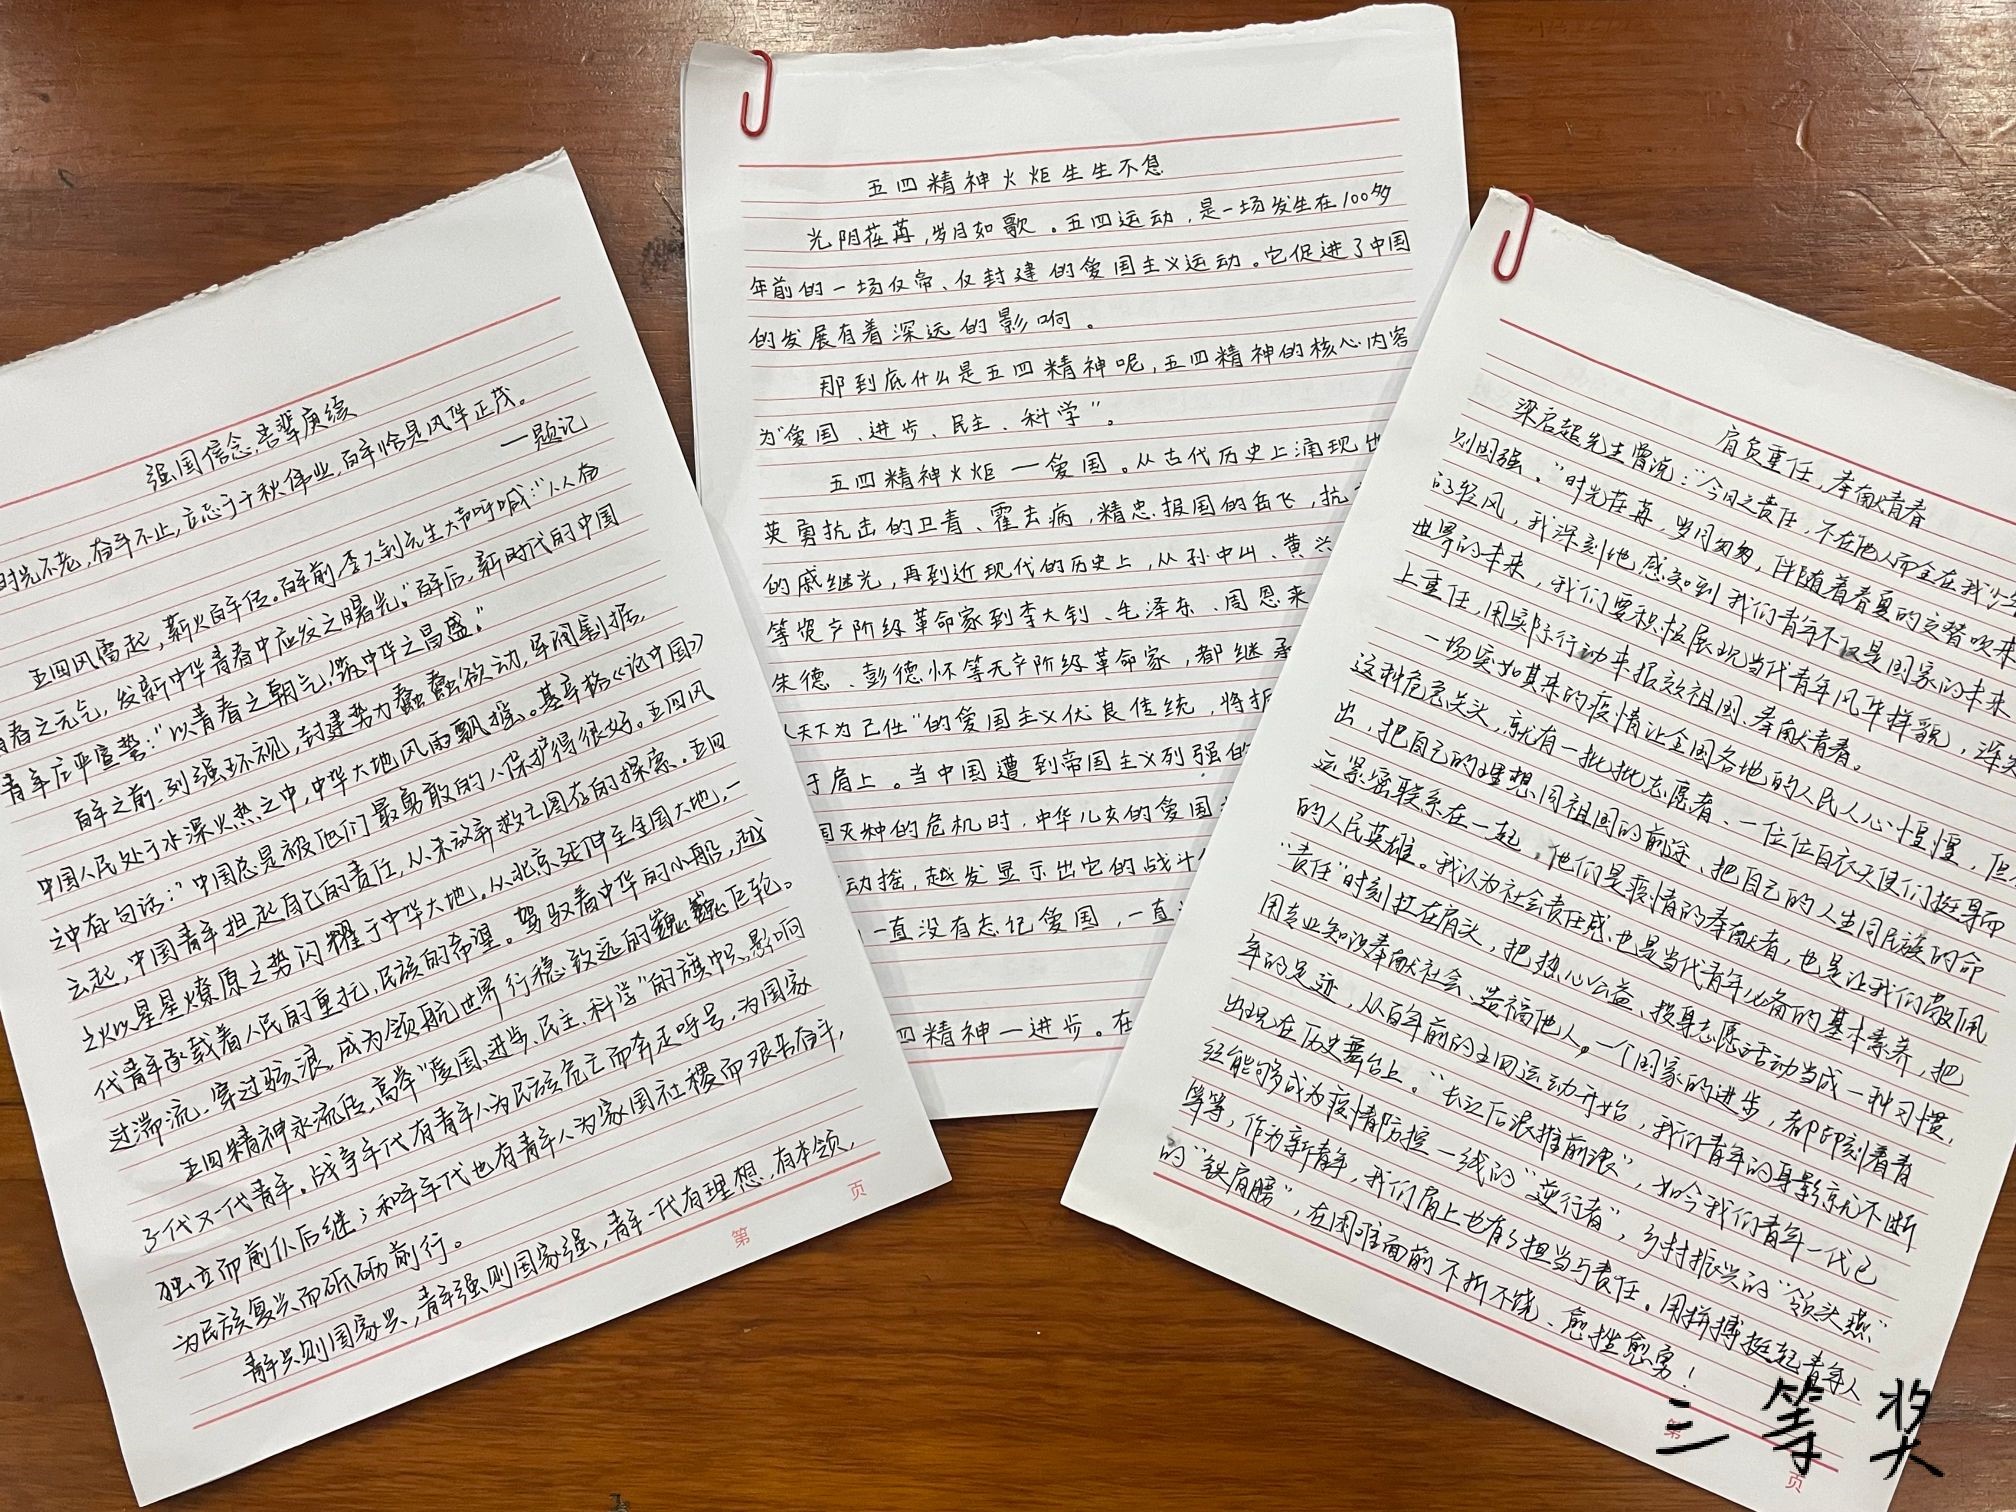 强国信念,吾辈赓续
时光不老,奋斗不止,立志于千秋伟业,百年恰是风华正茂。
—题记
五四风雷起,薪火百年传。百年前,李大钊先生大声呼喊:"人人有
青春之元气,发新中华青春中应发之曙光。"百年后,新时代的中国
青年庄严宣誓:"以青春之朝气!筑中华之昌盛。"
百年之前,列强环视,封建势力蠢蠢欲动,军阀割据,
中国人民处于水深火热之中,中华大地风雨飘摇。基辛格《论中国》
之中有句话:"中国总是被他们最勇敢的人保护得很好。五四风
云起,中国青年担起自己的责任,从未放弃救亡图存的探索。五四
之火以星星燎原之势闪耀于中华大地。从北京延伸至全国大地,一
代青年承载着人民的重托,民族的希望。驾驭着中华的小船,越
过湍流,穿过骇浪,成为领航世界行稳致远的巍巍巨轮。
五四精神永流传,高举"爱国、进步、民主、科学"的旗帜,影响
了一代又一代青年。战争年代有青年人为民族危亡而奔走呼号,为国家
独立而前仆后继;和平年代也有青年人为家国社稷而艰苦奋斗,
为民族复兴而砥砺前行。
青年兴则国家兴,青年强则国家强,青年一代有理想,有本领,
第 页
五四精神火炬生生不息
光阴荏苒,岁月如歌。五四运动,是一场发生在100多
年前的一场反帝、反封建的爱国主义运动。它促进了中国
的发展有着深远的影响。
那到底什么是五四精神呢,五四精神的核心内容
为"爱国、进步、民主、科学"。
五四精神火炬—爱国。从古代历史上涌现出
英勇抗击的卫青、霍去病,精忠报国的岳飞,抗
的戚继光,再到近现代的历史上,从孙中山、黄兴
等资产阶级革命家到李大钊、毛泽东、周恩来
朱德、彭德怀等无产阶级革命家,都继承
天下为己任"的爱国主义优良传统,将振
于肩上。当中国遭到帝国主义列强的
国灭种的危机时,中华儿女的爱国
动摇,越发显示出它的战斗
一直没有忘记爱国,一直
四精神—进步。在
肩负重任,奉献青春
梁启超先生曾说:"今日之责任,不在他人而全在我少年
则国强。"时光荏苒,岁月匆匆,伴随着春夏的交替吹来
的轻风,我深刻地感知到我们青年不仅是国家的未来
世界的未来,我们要积极展现当代青年风华样貌,深知
上重任,用实际行动来报效祖国、奉献青春。
一场突如其来的疫情让全国各地的人民人心惶惶,但
这种危急关头,就有一批批志愿者、一位位白衣天使们挺身而
出,把自己的理想同祖国的前途、把自己的人生同民族的命
运紧密联系在一起,他们是疫情的奉献者,也是让我们敬佩
的人民英雄。我认为社会责任感也是当代青年必备的基本素养,把
"责任"时刻扛在肩头,把热心公益、投身志愿活动当成一种习惯,
用专业知识奉献社会、造福他人。一个国家的进步,都印刻着青
年的足迹,从百年前的五四运动开始,我们青年的身影就不断
出现在历史舞台上。"长江后浪推前浪",如今我们青年一代已
经能够成为疫情防控一线的"逆行者",乡村振兴的"领头燕"
等等,作为新青年,我们肩上也有了担当与责任。用拼搏挺起青年人
的"铁肩膀",在困难面前不折不饶、愈挫愈勇!
第 页
三等奖